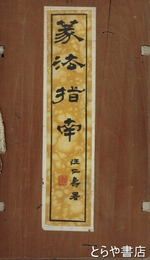 篆法指南
汪仁壽署
とらや書店